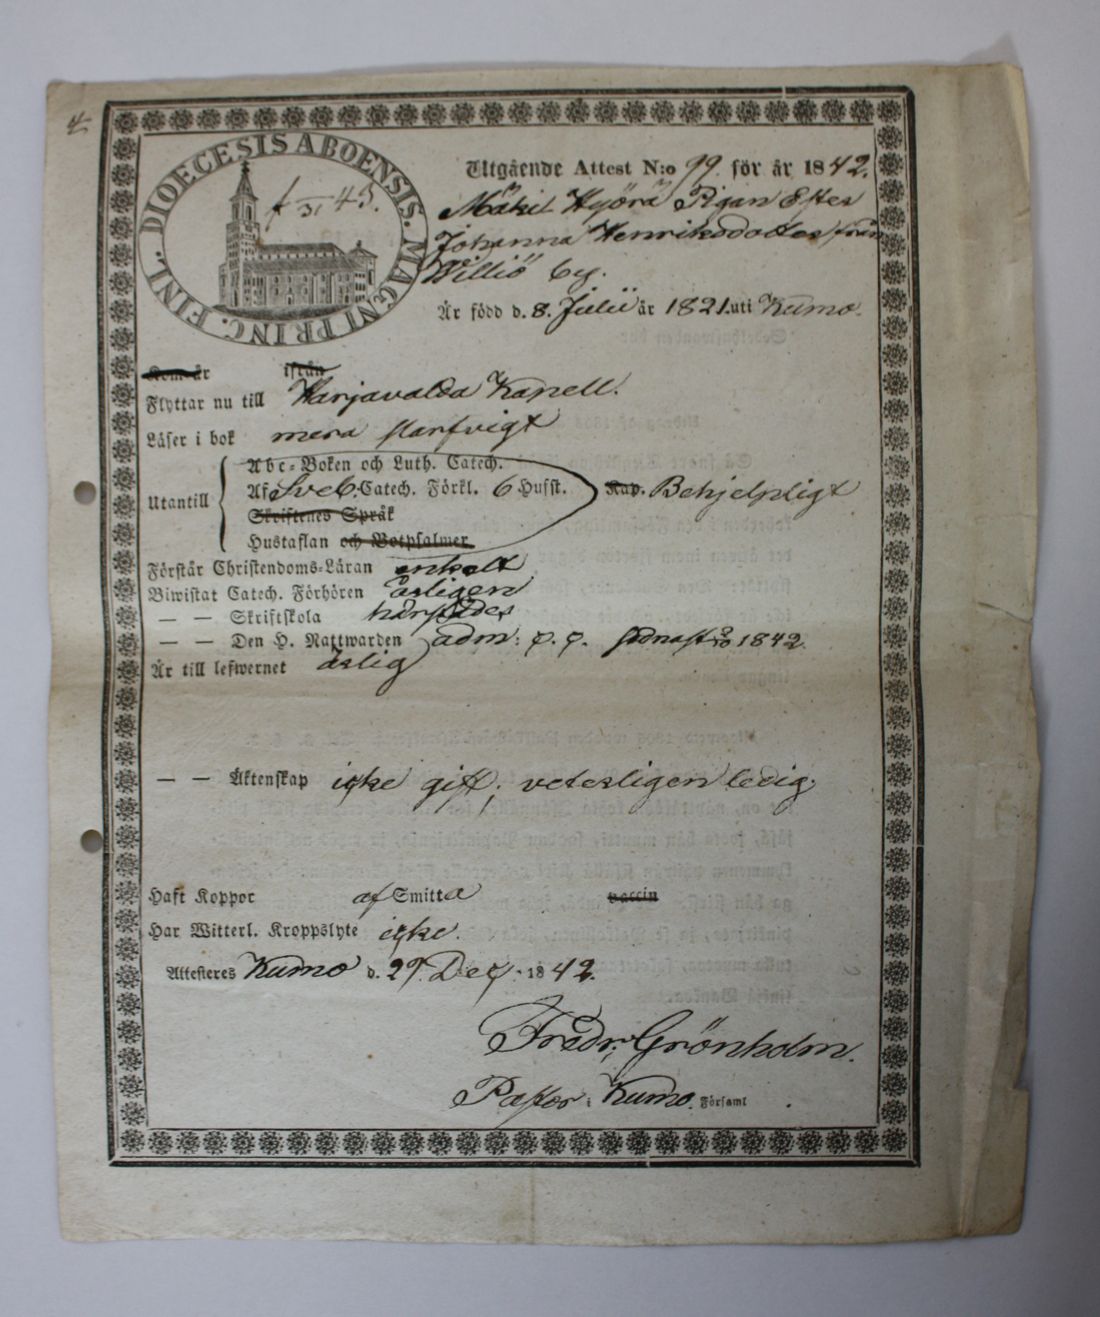 4
DIOECESIS ABOENSIS. MAGNI PRINC. FINL.
f 31 43.
Utgående Attest N:o 99. för år 1842.
Mäkil Hyörä Pigan Ester
Johanna Henriksdotter från
Williö by.
Är född d. 8. Julii år 1821. uti Kumo.
Kom år ifrån
Flyttar nu till Harjavalda Kapell.
Läser i bok mera slarfvigt
Abc-Boken och Luth. Catech.
Utantill Af Sveb. Catech. Förkl. 6 Hufst. Kap. Behjelpligt
Skriftenes Språk
Hustaflan och Botpsalmer
Förstår Christendoms-Läran enkelt
Biwistat Catech. Förhören årligen
— — Skriftskola härstädes
— — Den H. Nattwarden adm: sednast 1842.
Är till lefwernet ärlig
— — Äktenskap icke gift, veterligen ledig.
Haft Koppor af Smitta vaccin
Har Witterl. Kroppslyte icke.
Attesteres Kumo d. 29 Dec. 1842.
Fredr. Grönholm.
Pastor i Kumo. Församl